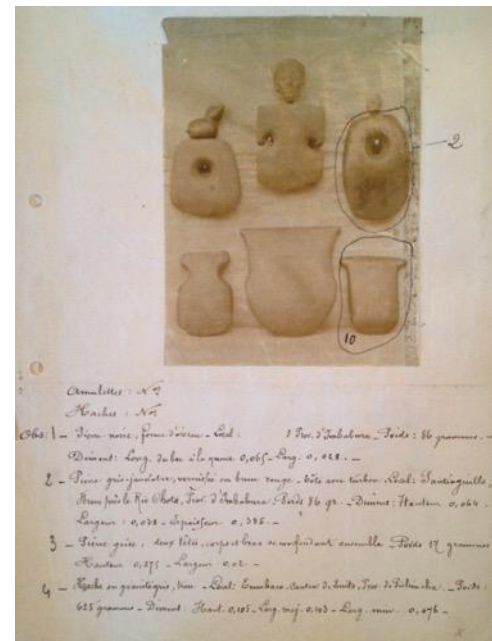 2
10
Amulettes : Nos
Haches : Nos
Obs. 1 – Pierre noire, forme d'oiseau – Local : Prov. d'Imbabura – Poids : 86 grammes. –
Diment : Long. du bec à la queue 0,065 – Larg. 0,028. –
2 – Pierre gris-jaunâtre, vernissée en brun rouge. – Tête avec turban – Local : Santiaguillo,
près le Rio Chota, Prov. d'Imbabura – Poids 86 gr. – Diment : Hauteur 0,064 –
Largeur : 0,038 – Epaisseur 0,
3 – Pierre grise, deux têtes, corps et bras se confondant ensemble – Poids 17 grammes
Hauteur 0,275 – Largeur 0,02 –
4 – Hache en granit gris, – Local : canton de Quito, Prov. de Pichincha – Poids :
625 grammes – Diment : Haut. 0,105 – Larg. maj. 0,103 – Larg. min. 0,076 –